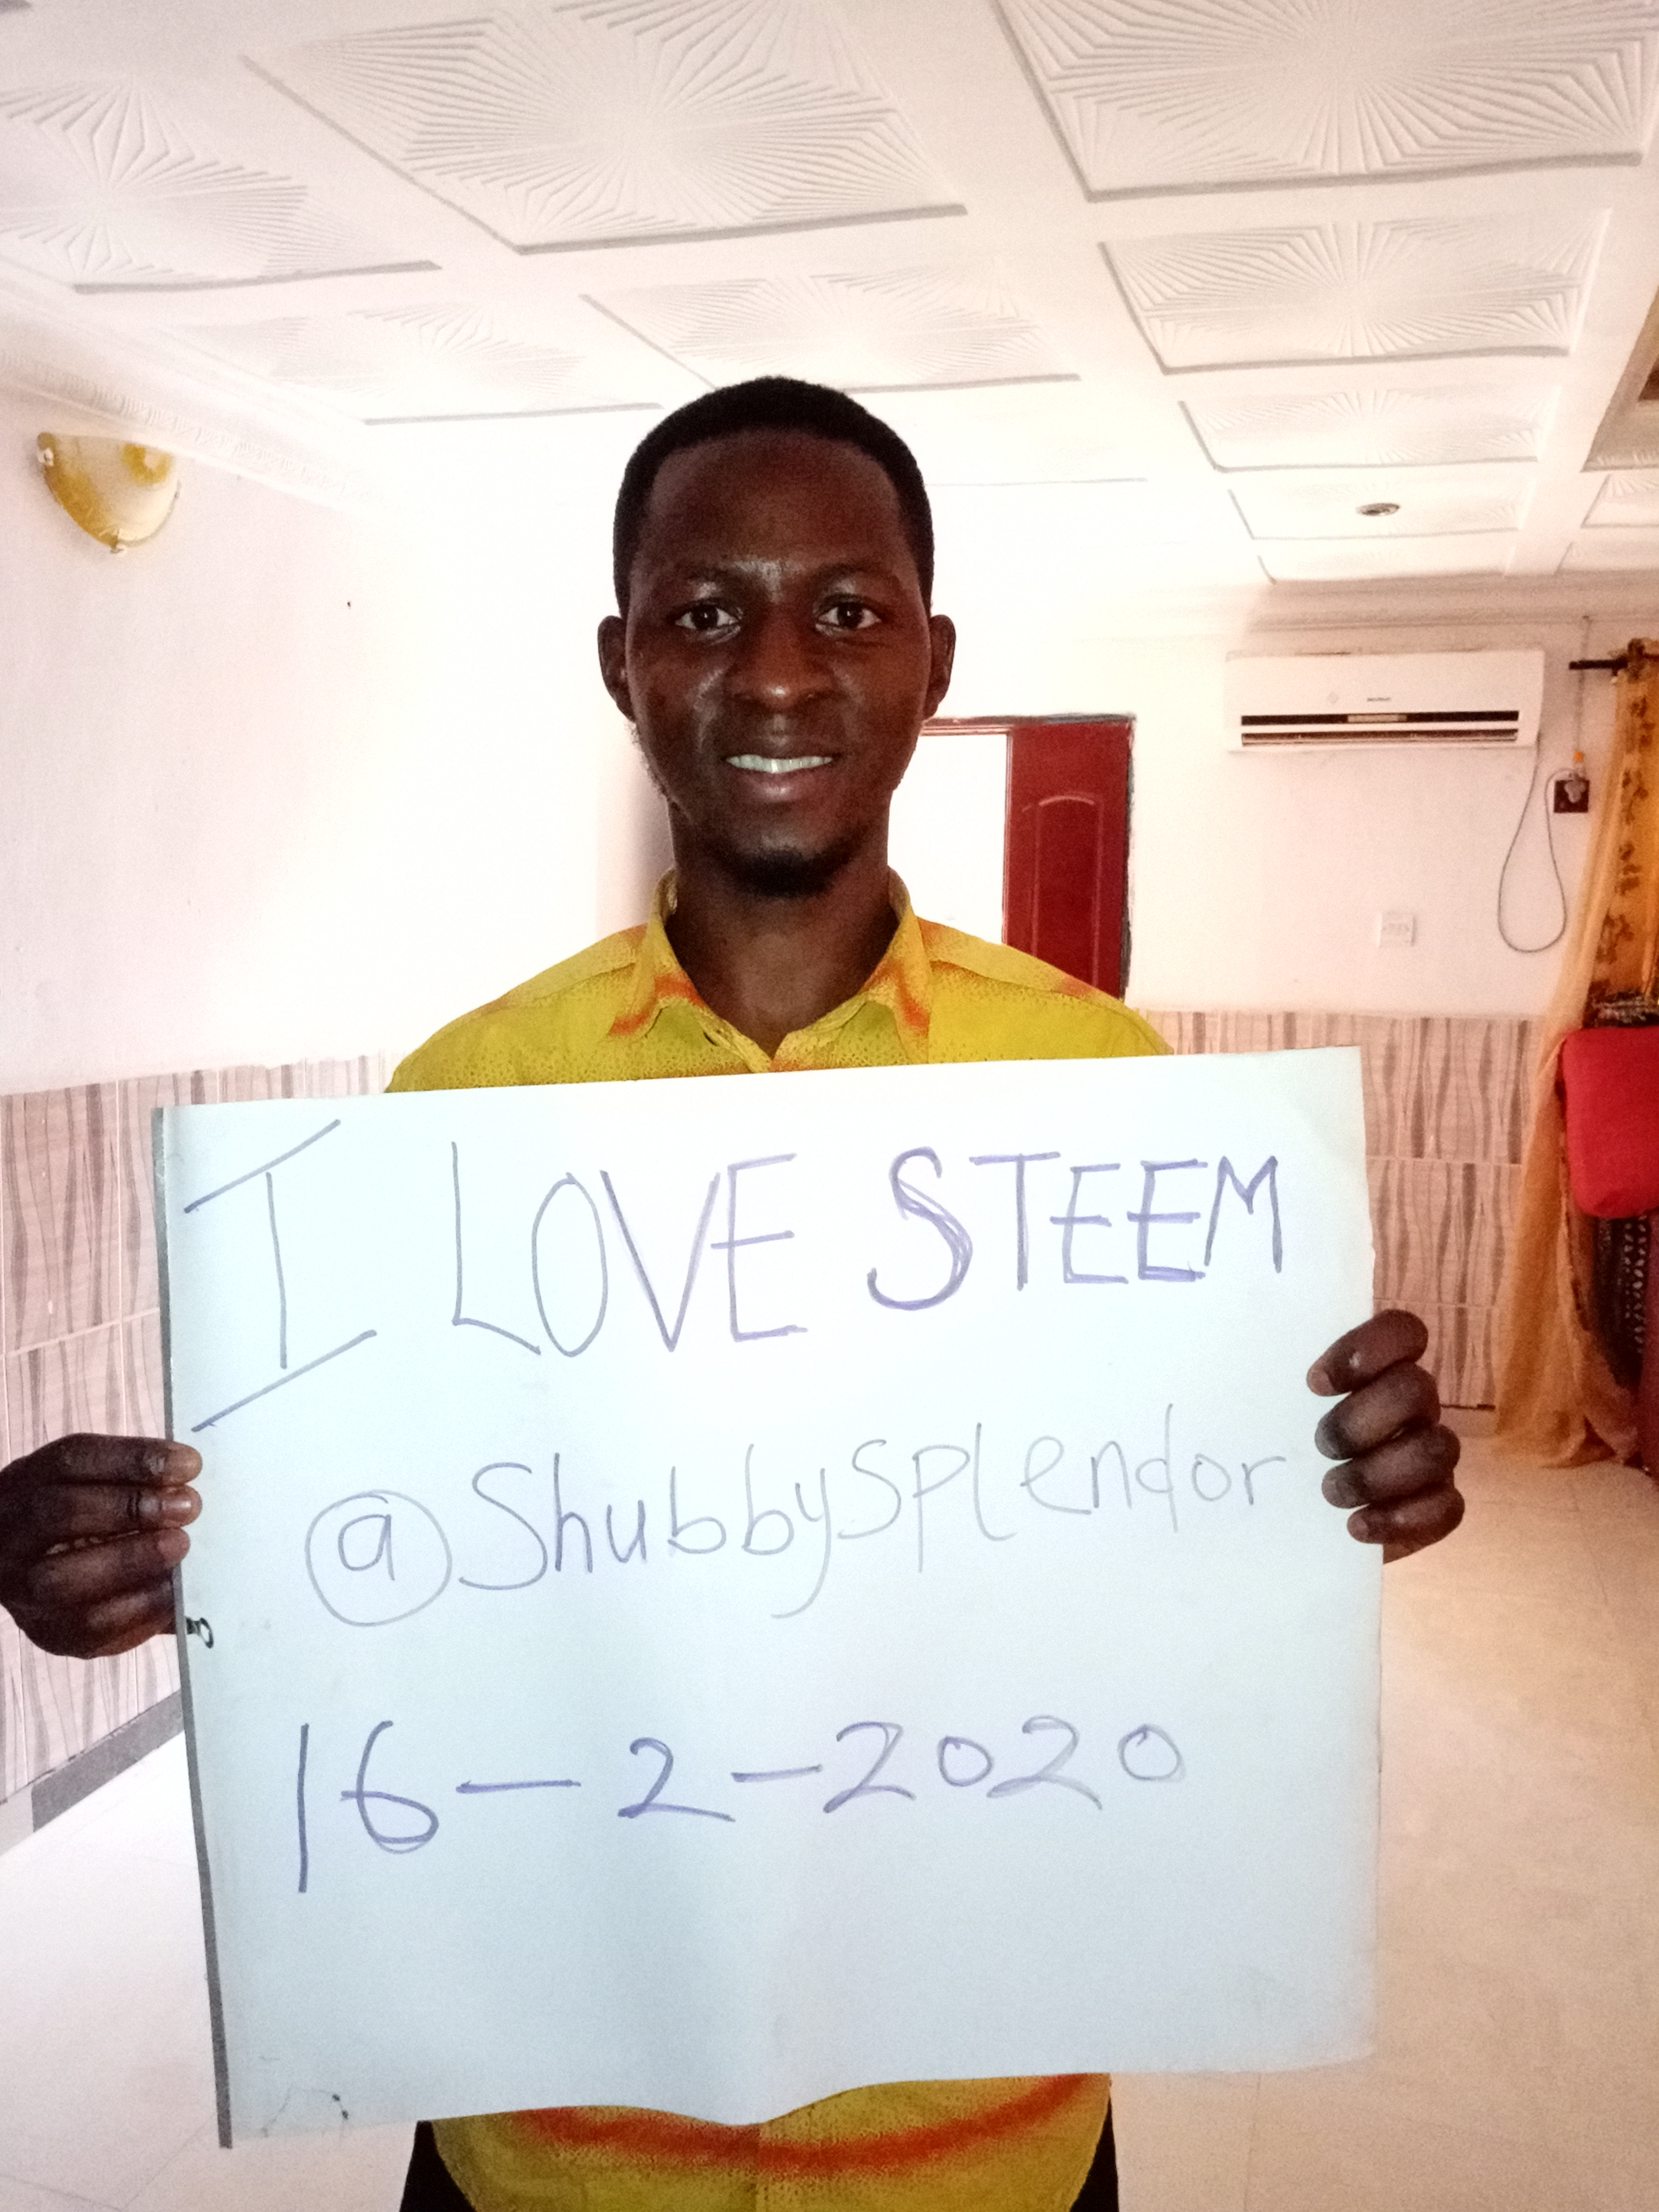 I LOVE STEEM
@Shubbysplendor
16-2-2020